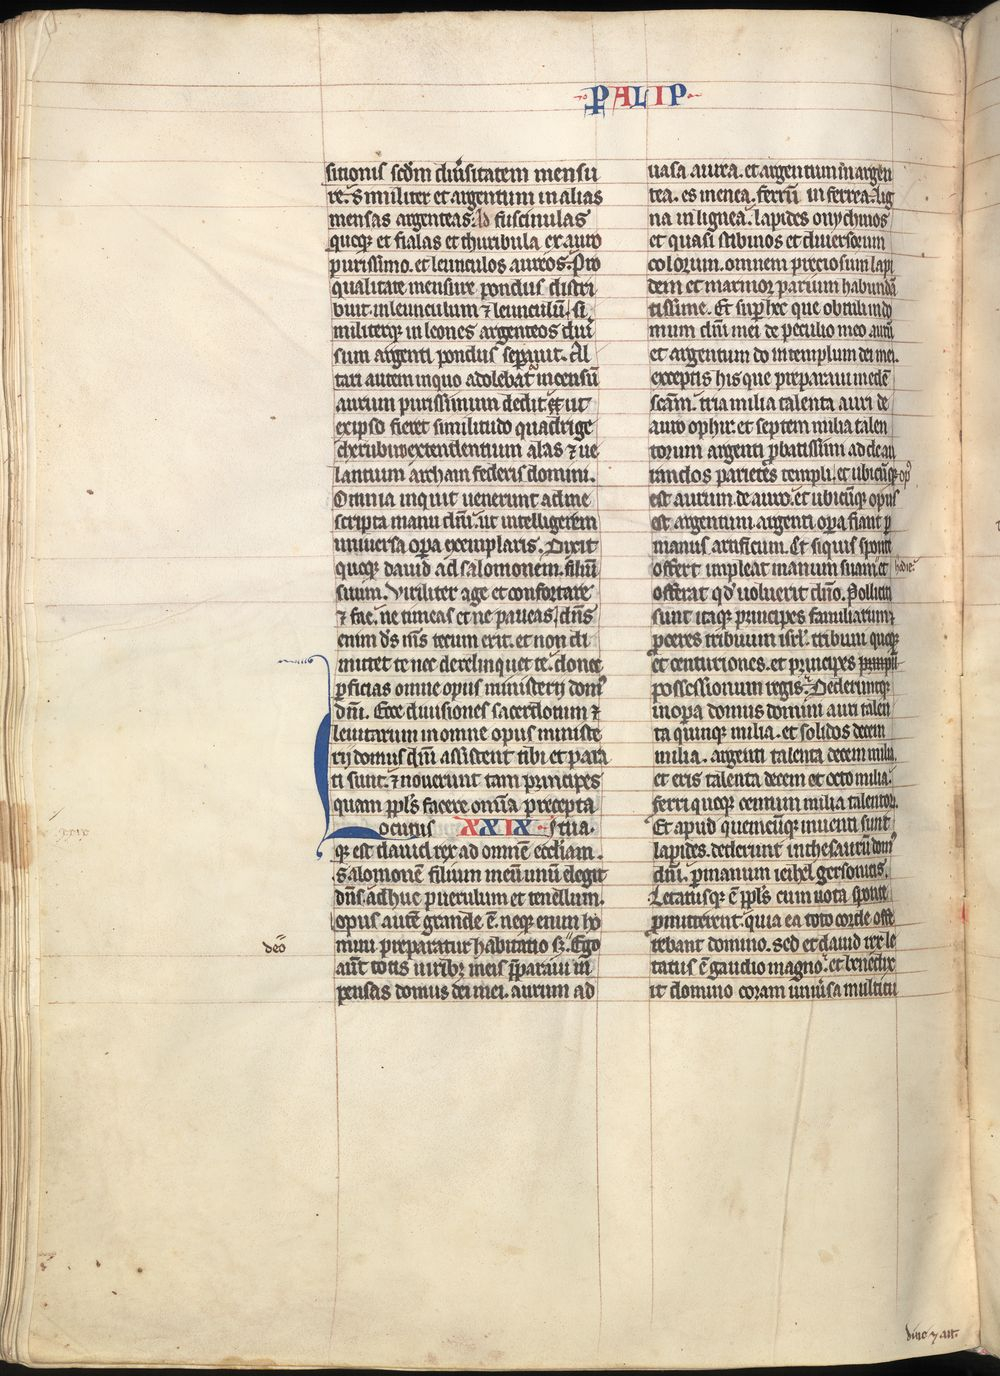 PALIP
sitionis scdm diuersitatem mensu
re. Similiter et argentum in alias
mensas argenteas. Ad fuscinulas
queq; et fialas et thuribula ex auro
purissimo. et leunculos aureos. Pro
qualitate mensure pondus distri
buit in leunculum ⁊ leunculū. si
militerq; in leones argenteos diuer
sum argenti pondus sepauit. Al
tari autem in quo adolebat incensū
aurum purissimum dedit ut
ex ipso fieret similitudo quadrige
cherubin extendentium alas ⁊ ue
lantium archam federis domini.
Omnia inquit uenerunt ad me
scripta manu dn̄i. ut intelligerem
uniuersa opa exemplaris. Dixit
queq; dauid ad salomonem. filiū
suum. Viriliter age et confortare
⁊ fac. ne timeas et ne paueas. dn̄s
enim ds̄ m̄s tecum erit. et non di
mittet te nec derelinquet te. donec
pficias omne opus ministerij dom'
dn̄i. Ecce diuisiones sacerdotum ⁊
leuitarum in omne opus ministe
rij domus dn̄i assistent tibi et para
ti sunt. ⁊ nouerunt tam principes
quam ppl̄s facere omīa precepta
tua.
Locutus XXIX
q; est dauid rex ad omnē eccl̄iam.
Salomonē filium meū unū elegit
dn̄s. adhuc puerulum et tenellum.
opus autē grande ē. neque enim ho
mini preparatur habitatio sꝫ. Ego
deō
aūt totis uiribꝫ meis pparaui in
pensas domus dei mei. aurum ad
uasa aurea. et argentum in argen
tea. es in enea. ferrū in ferrea. lig
na in lignea. lapides onychinos
et quasi stibinos et diuersorum
colorum. omnem preciosum lapi
dem et marmor parium habundā
tissime. Et sup hec que obtuli in do
mum dn̄i mei de peculio meo aurū
et argentum do in templum dei mei.
exceptis his que preparaui in edē
scām. tria milia talenta auri de
auro ophir. et septem milia talen
torum argenti pbatissimi ad deau
randos parietes templi. et ubicūq; op'
est aurum. de auro. et ubicūq; opus
est argentum. argenti opa fiant p
manus artificum. Et si quis sponte
offert impleat manum suam et hodie
offerat qd' uoluerit dn̄o. Polliciti
sunt itaq; principes familiarum ⁊
pceres tribuum isrl'. tribuni queq;
et centuriones. et principes
possessionum regis. Dederuntq;
in opa domus domini auri talen
ta quinq; milia. et solidos decem
milia. argenti talenta decem milia.
et eris talenta decem et octo milia.
ferri queq; centum milia talentor.
Et apud quemcūq; inuenti sunt
lapides. dederunt in thesaurū dom'
dn̄i. p manum ieihel gersonitis.
Letatusq; ē ppl̄s cum uota sponte
pmitterent. quia ea toto corde offe
rebant domino. sed et dauid rex le
tatus ē gaudio magno. et benedix
it domino coram uniusa multitu